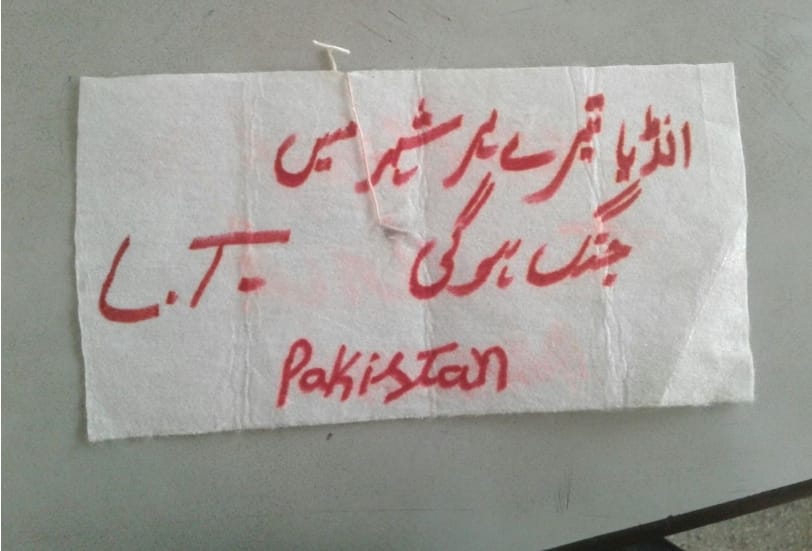 انڈیا تیرے ہر شہر میں
جنگ ہوگی L.T.
Pakistan